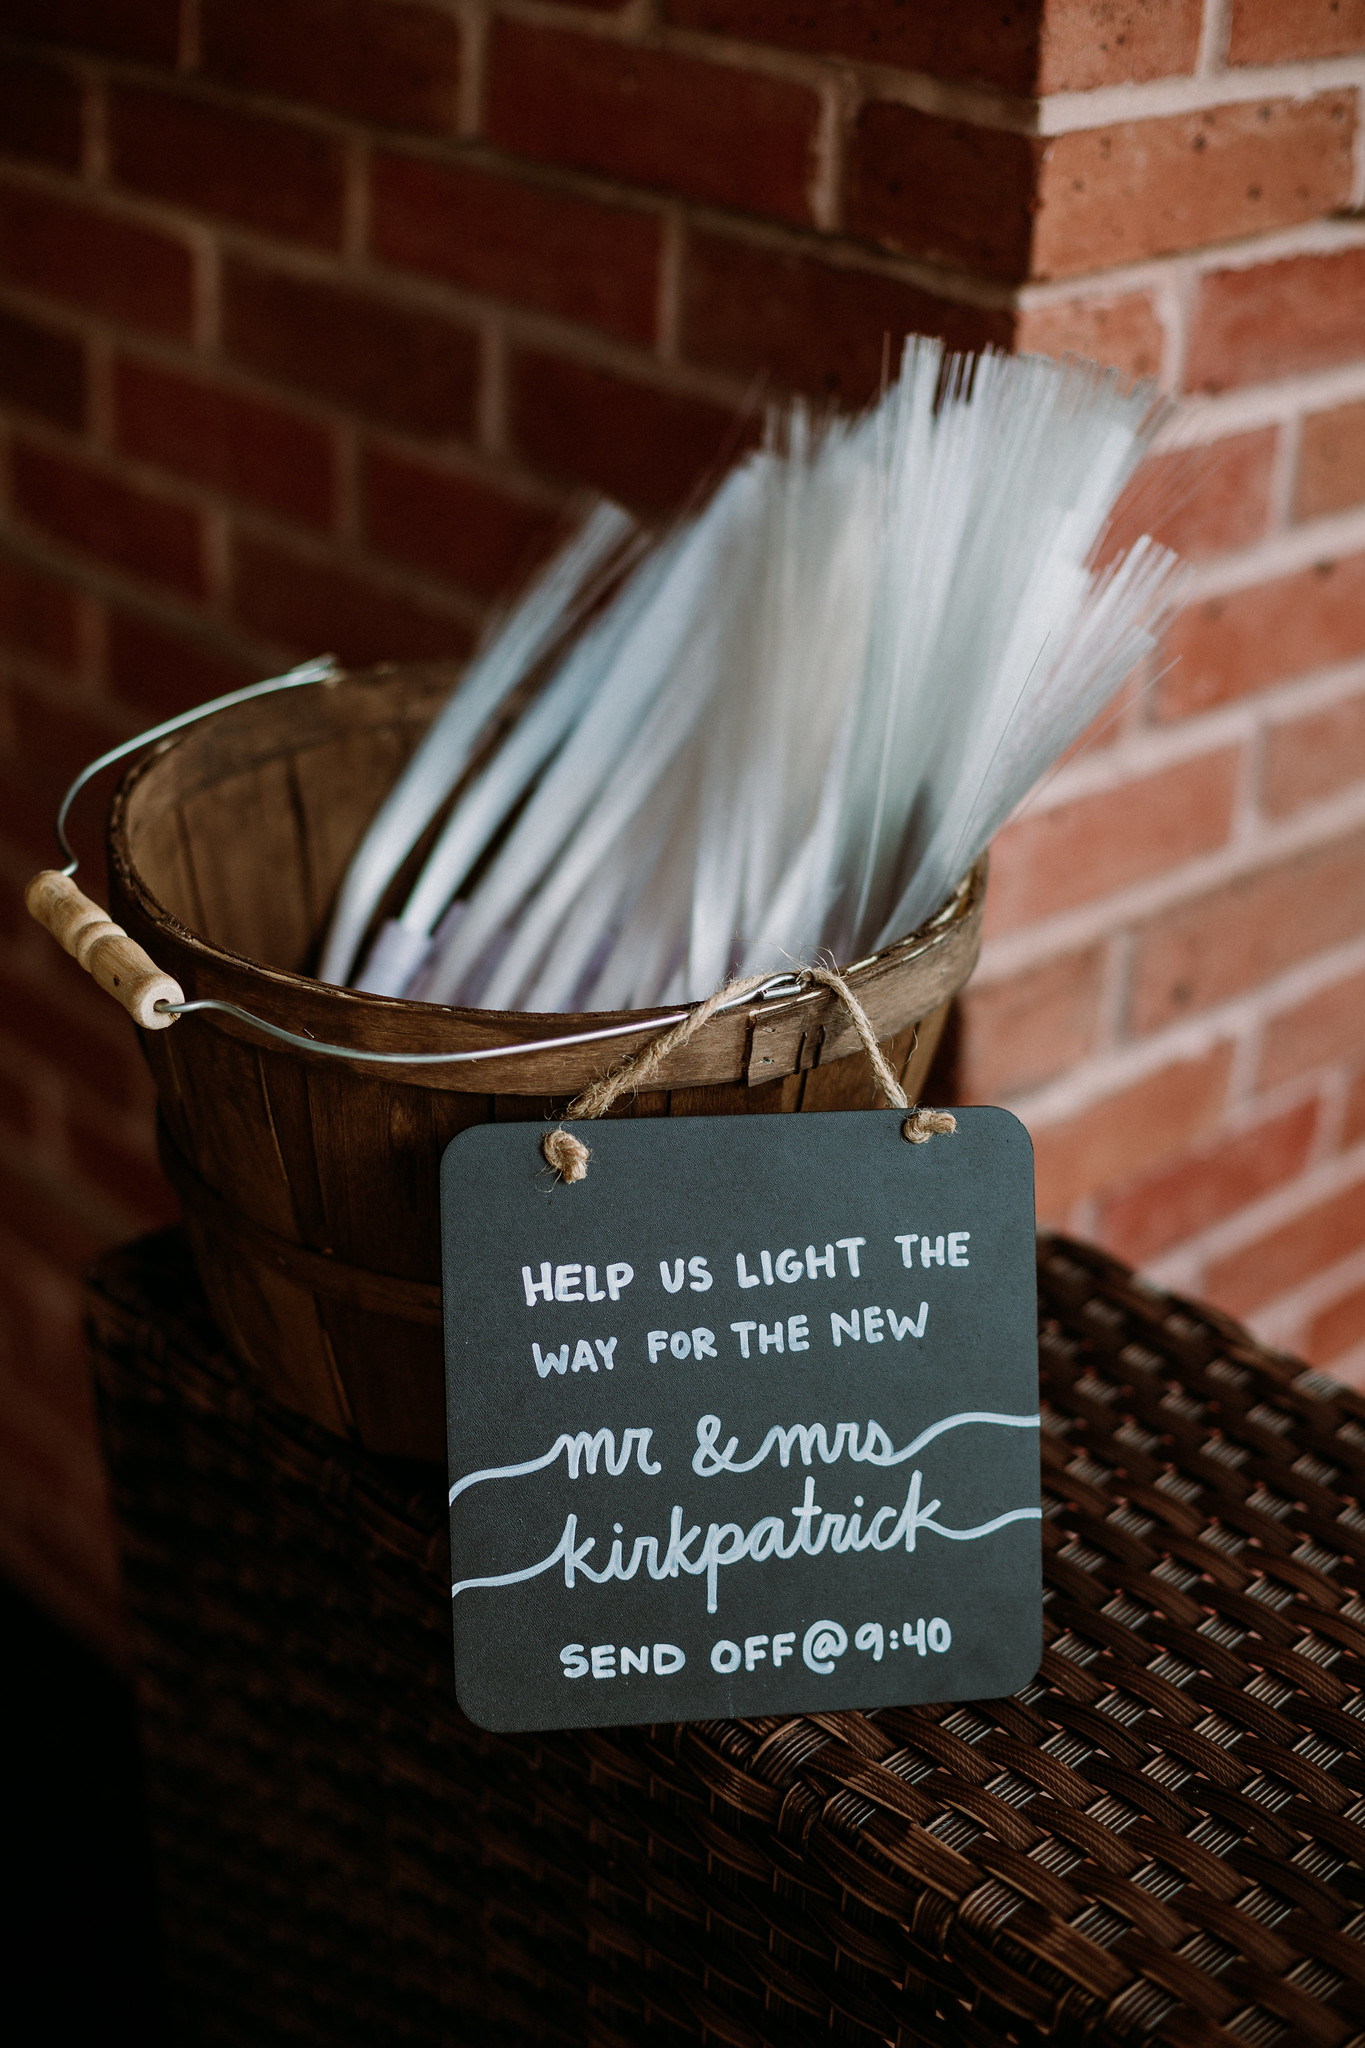 HELP US LIGHT THE
WAY FOR THE NEW
mr & mrs
kirkpatrick
SEND OFF @ 9:40